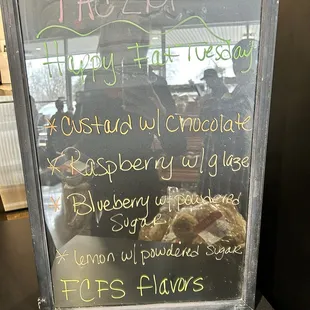 Happy Fat Tuesday
* Custard w/ Chocolate
* Raspberry w/ glaze
* Blueberry w/ powdered
Sugar
* lemon w/ powdered Sugar
FCFS flavors